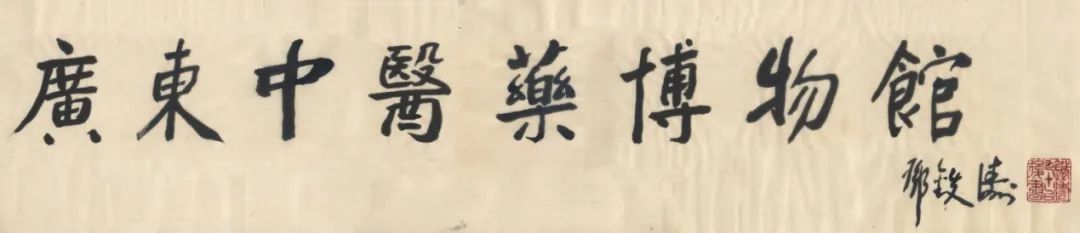 廣東中醫藥博物館
鄧鐵濤